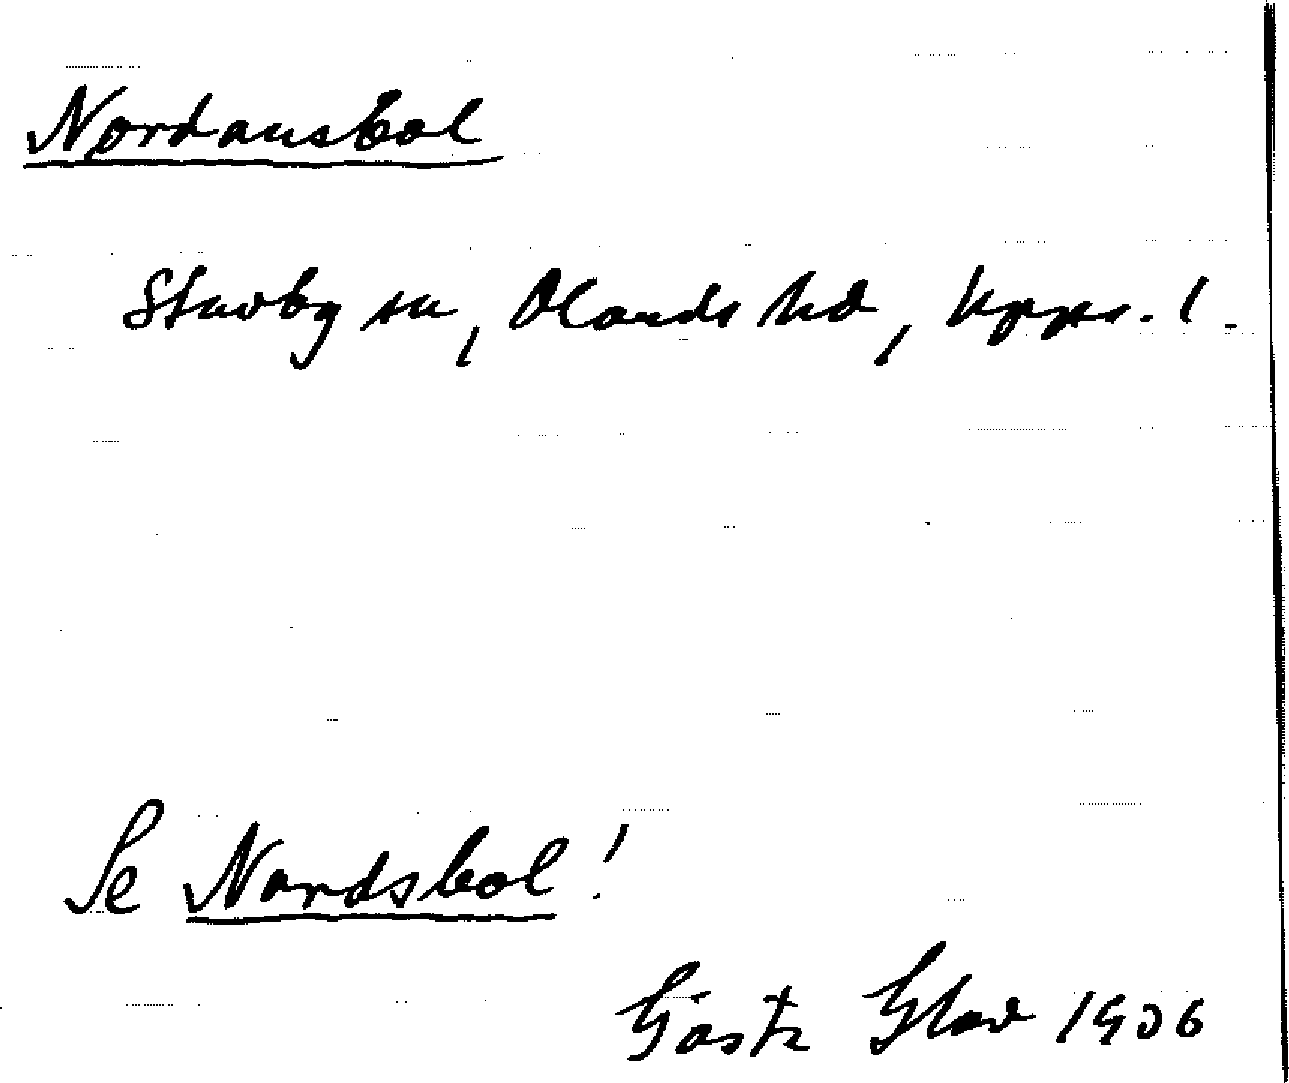 Nordansbol
Stavby sn, Olands hd, Upps. l.
Se Nordsbol!
Gösta Glad 1936